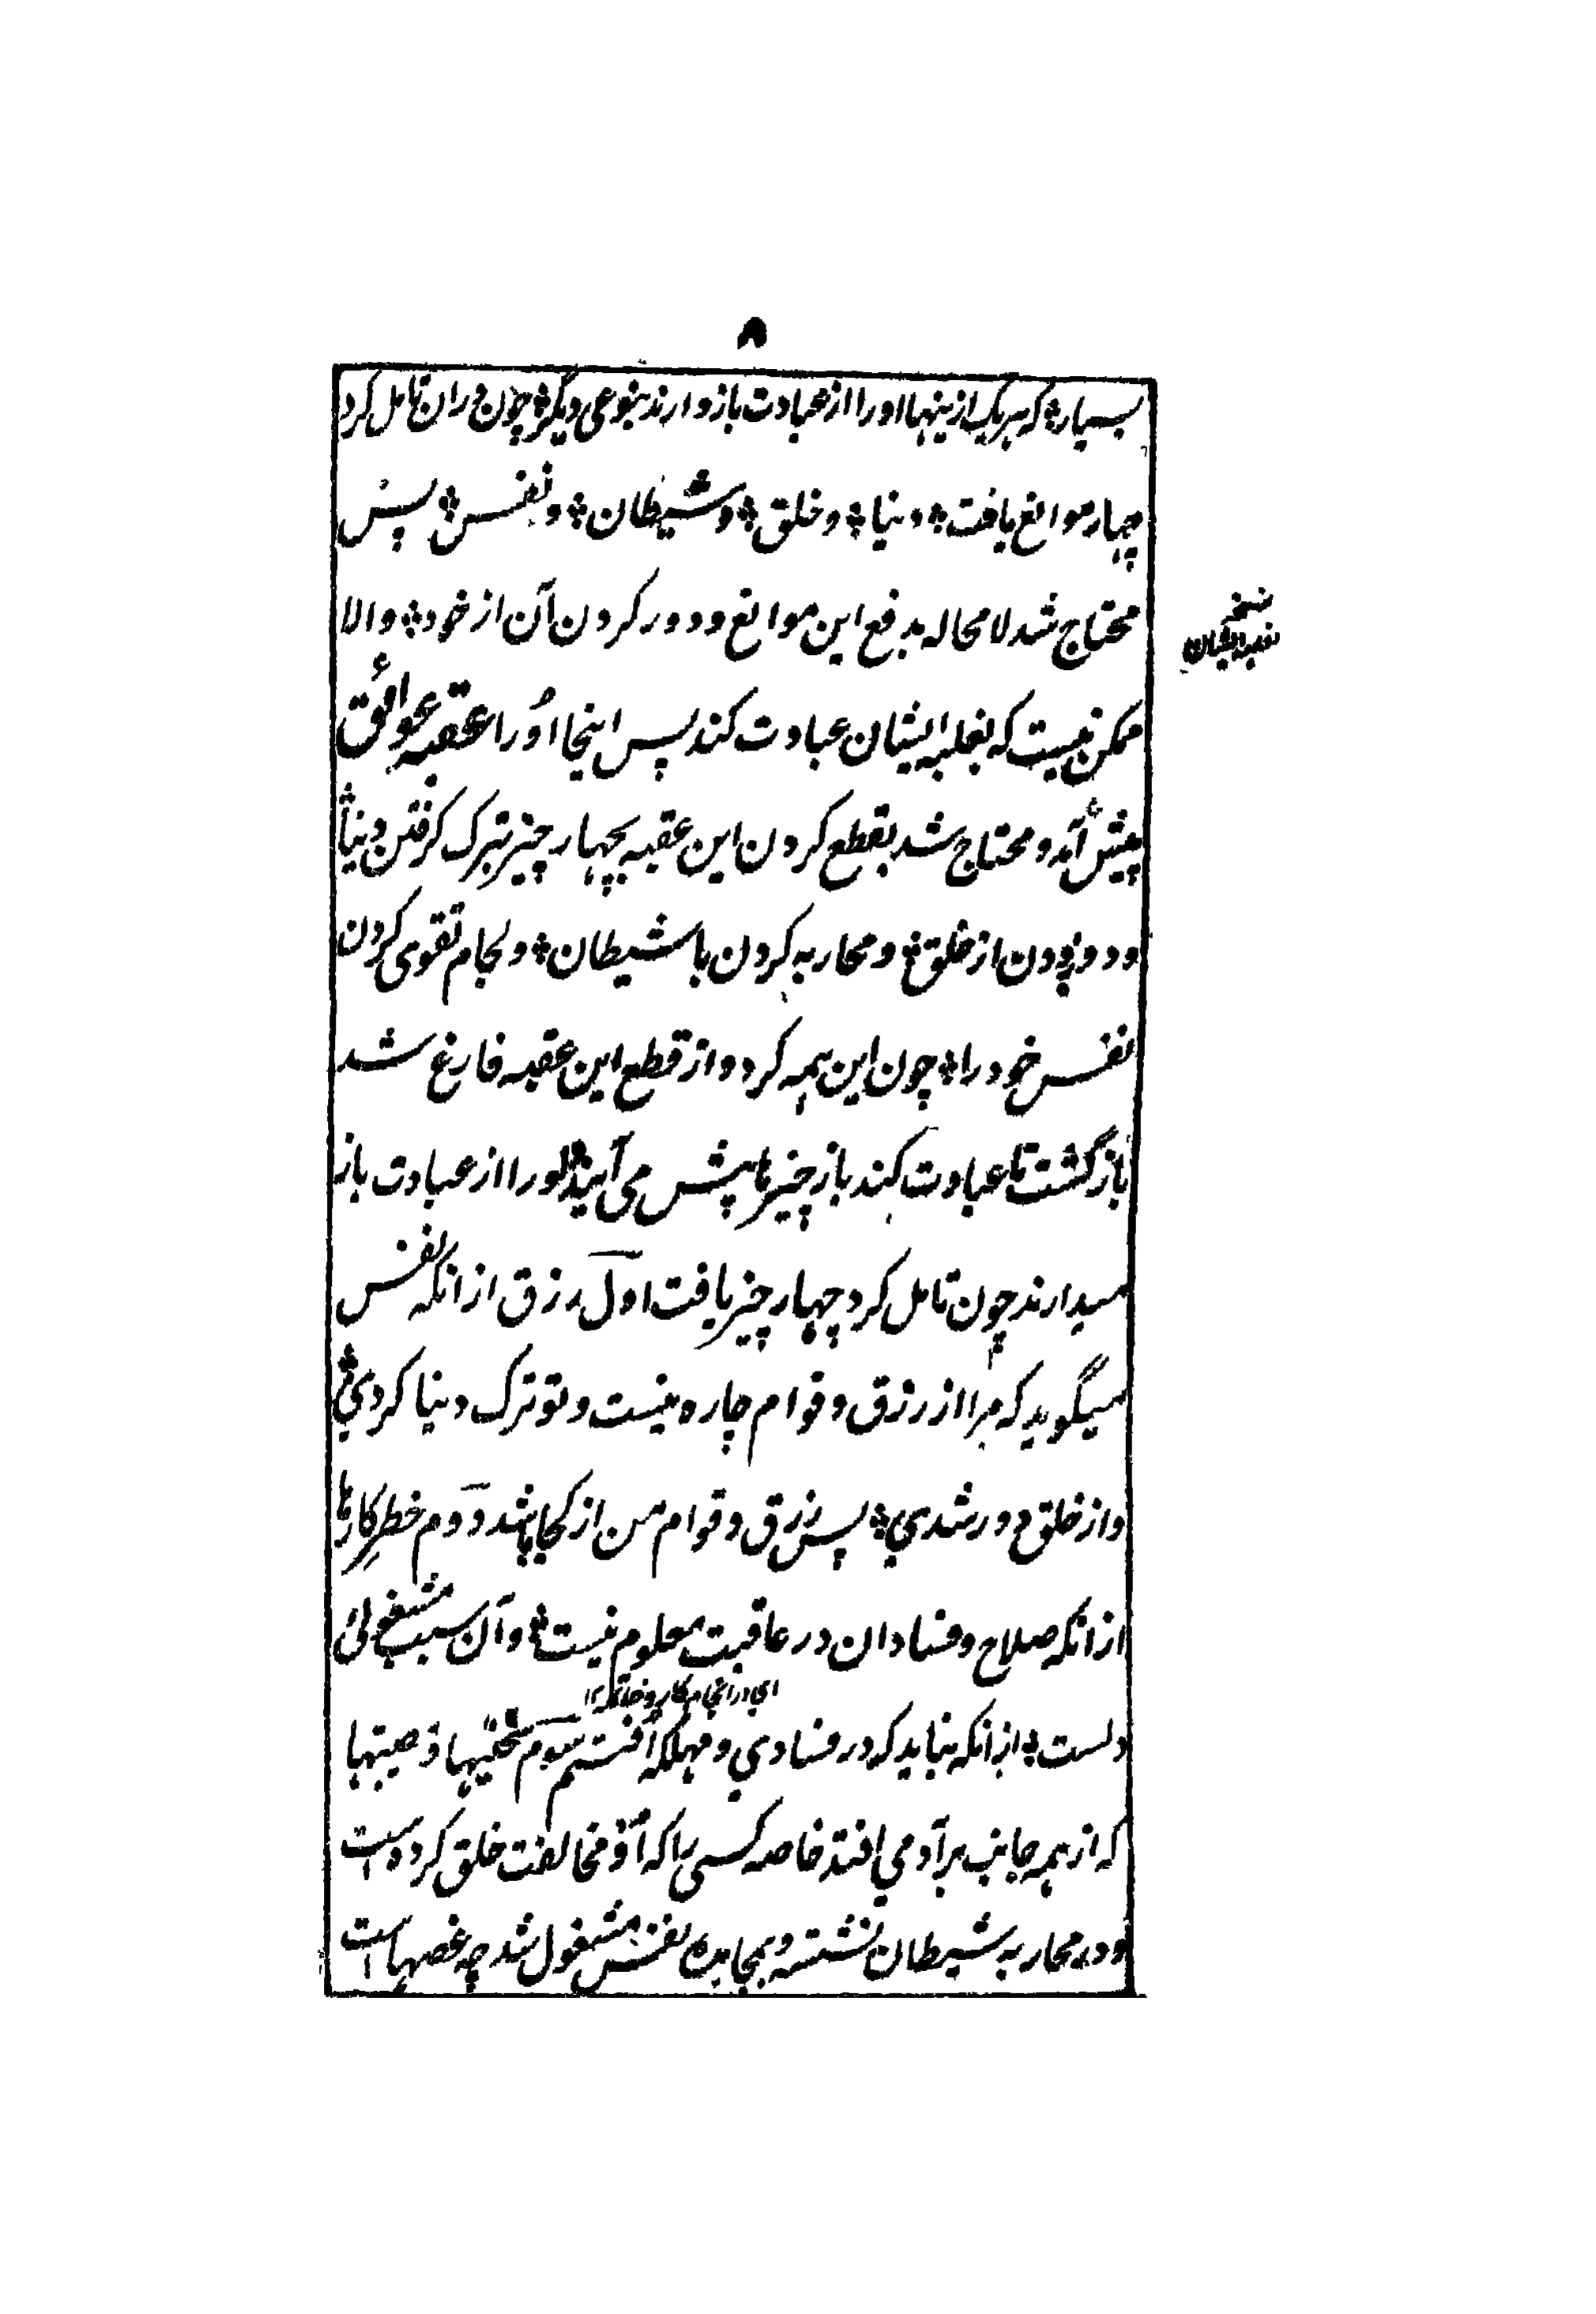 ۸
بسیار؞ که هر یک ازینها او را از عبادت باز دارند بنوعی دیگر؞ چون دران تامل کرد
چهار موانع یافت؞ دنیا؞ و خلق؞ و شیطان؞ و نفس؞ پس
محتاج شد لامحاله بدفع این موانع و دور کردن آن از خود؞ والا
نسخه
ممکن نیست که بغلبه ایشان عبادت کند پس اینجا اُورا عقبه عوائق
پیش آمد و محتاج شد بقطع کردن این عقبه بچهار چیز بترک گرفتن دنیا؞
و دور بودن از خلق؞ و محاربه کردن با شیطان؞ و لجام تقوی کردن
نفس خود را؞ چون این همه کرد و از قطع این عقبه فارغ شد
باز گشت تا عبادت کند باز چیزها پیش می آیند؞ اورا از عبادت باز
میدارند چون تامل کرد چهار چیز یافت اول رزق ازانکه نفس
میگوید که مرا از رزق و قوام چاره نیست و تو ترک دنیا کردي؞
و از خلق دور شدي؞ پس رزق و قوام من از کجا باشد دوم خطرِ کارها
ازانکه صلاح و فساد ان در عاقبت معلوم نیست؞ و آن سبب مشغولی
اي در انجام کار و خاتمه ۱۲
دلست؞ ازانکه نباید که در فسادي و مهلکه اُفتم سوم سختیها و مصیبتها
که از همه جانب بر آدمي افتد خاصه کسی را که اُو مخالفت خلق کرده است
و در محاربه شیطان نشسته و بمجاهده نفس مشغول شد چه غصهاست